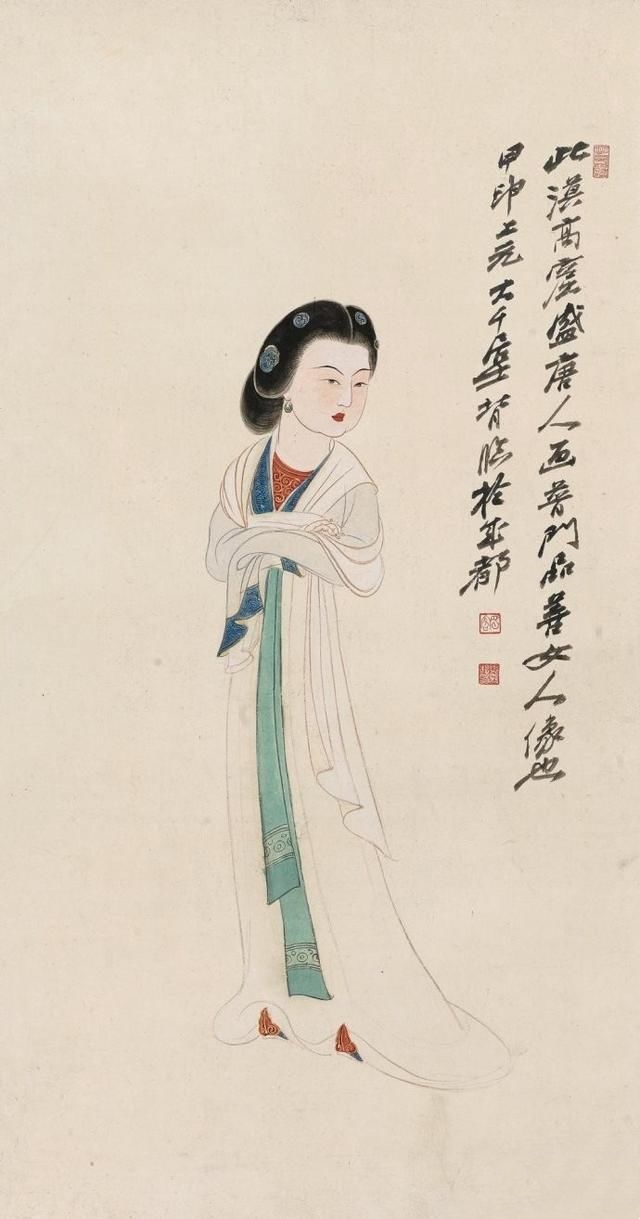 此漠高窟盛唐人画普門品善女人像也
甲申上元大千居士背臨於成都